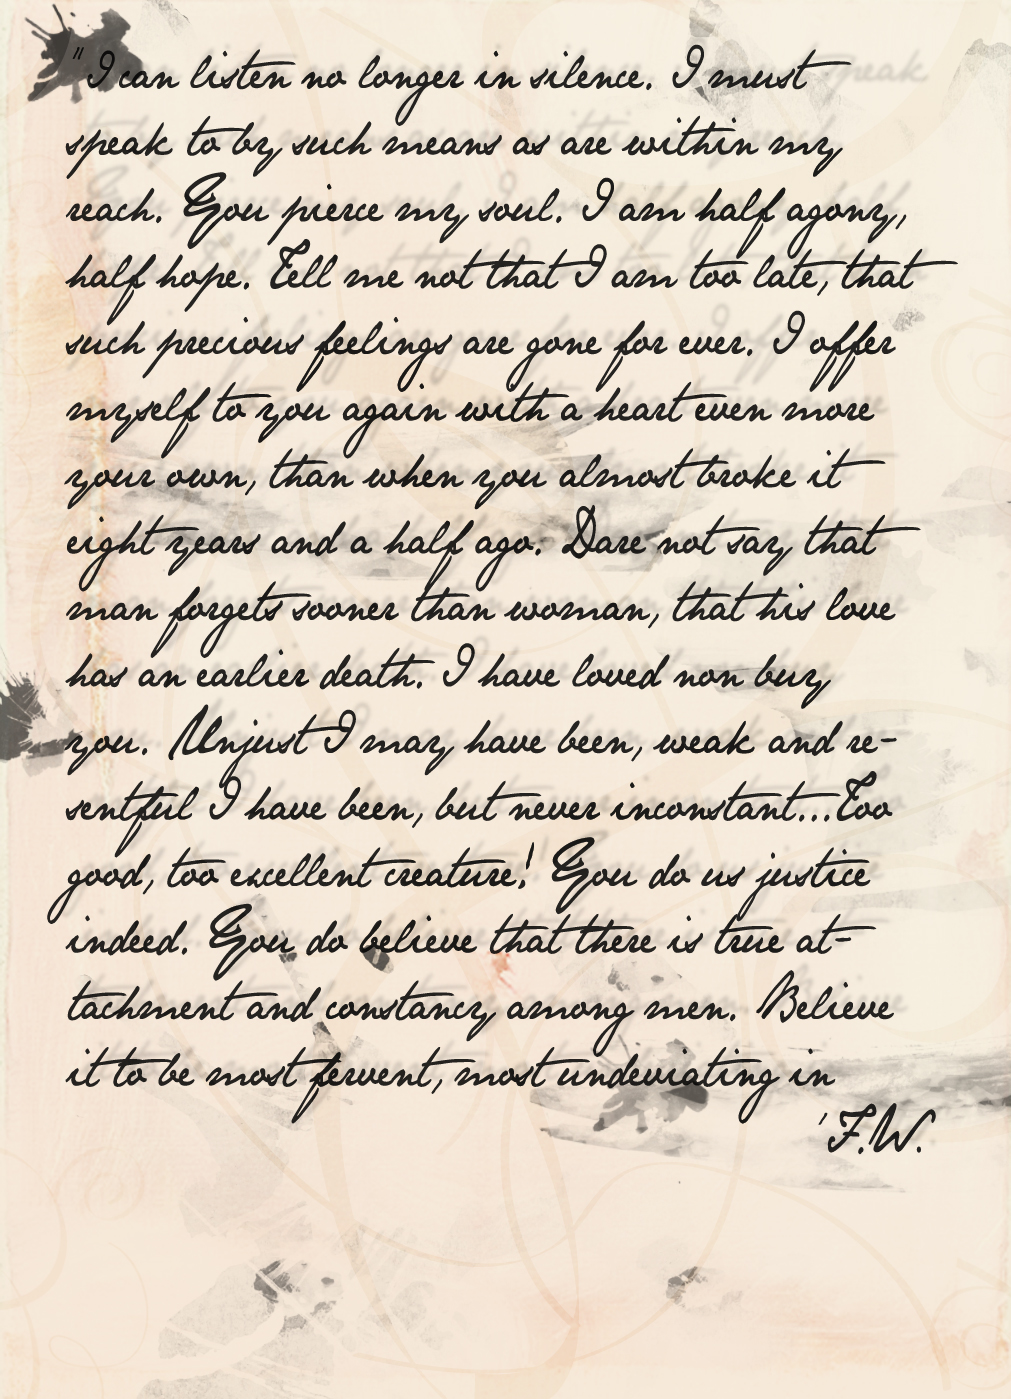 "I can listen no longer in silence. I must
speak to by such means as are within my
reach. You pierce my soul. I am half agony,
half hope. Tell me not that I am too late, that
such precious feelings are gone for ever. I offer
myself to you again with a heart even more
your own, than when you almost broke it
eight years and a half ago. Dare not say that
man forgets sooner than woman, that his love
has an earlier death. I have loved non buy
you. Unjust I may have been, weak and re-
sentful I have been, but never inconstant...Too
good, too excellent creature! You do us justice
indeed. You do believe that there is true at-
tachment and constancy among men. Believe
it to be most fervent, most undeviating in
'F.W.